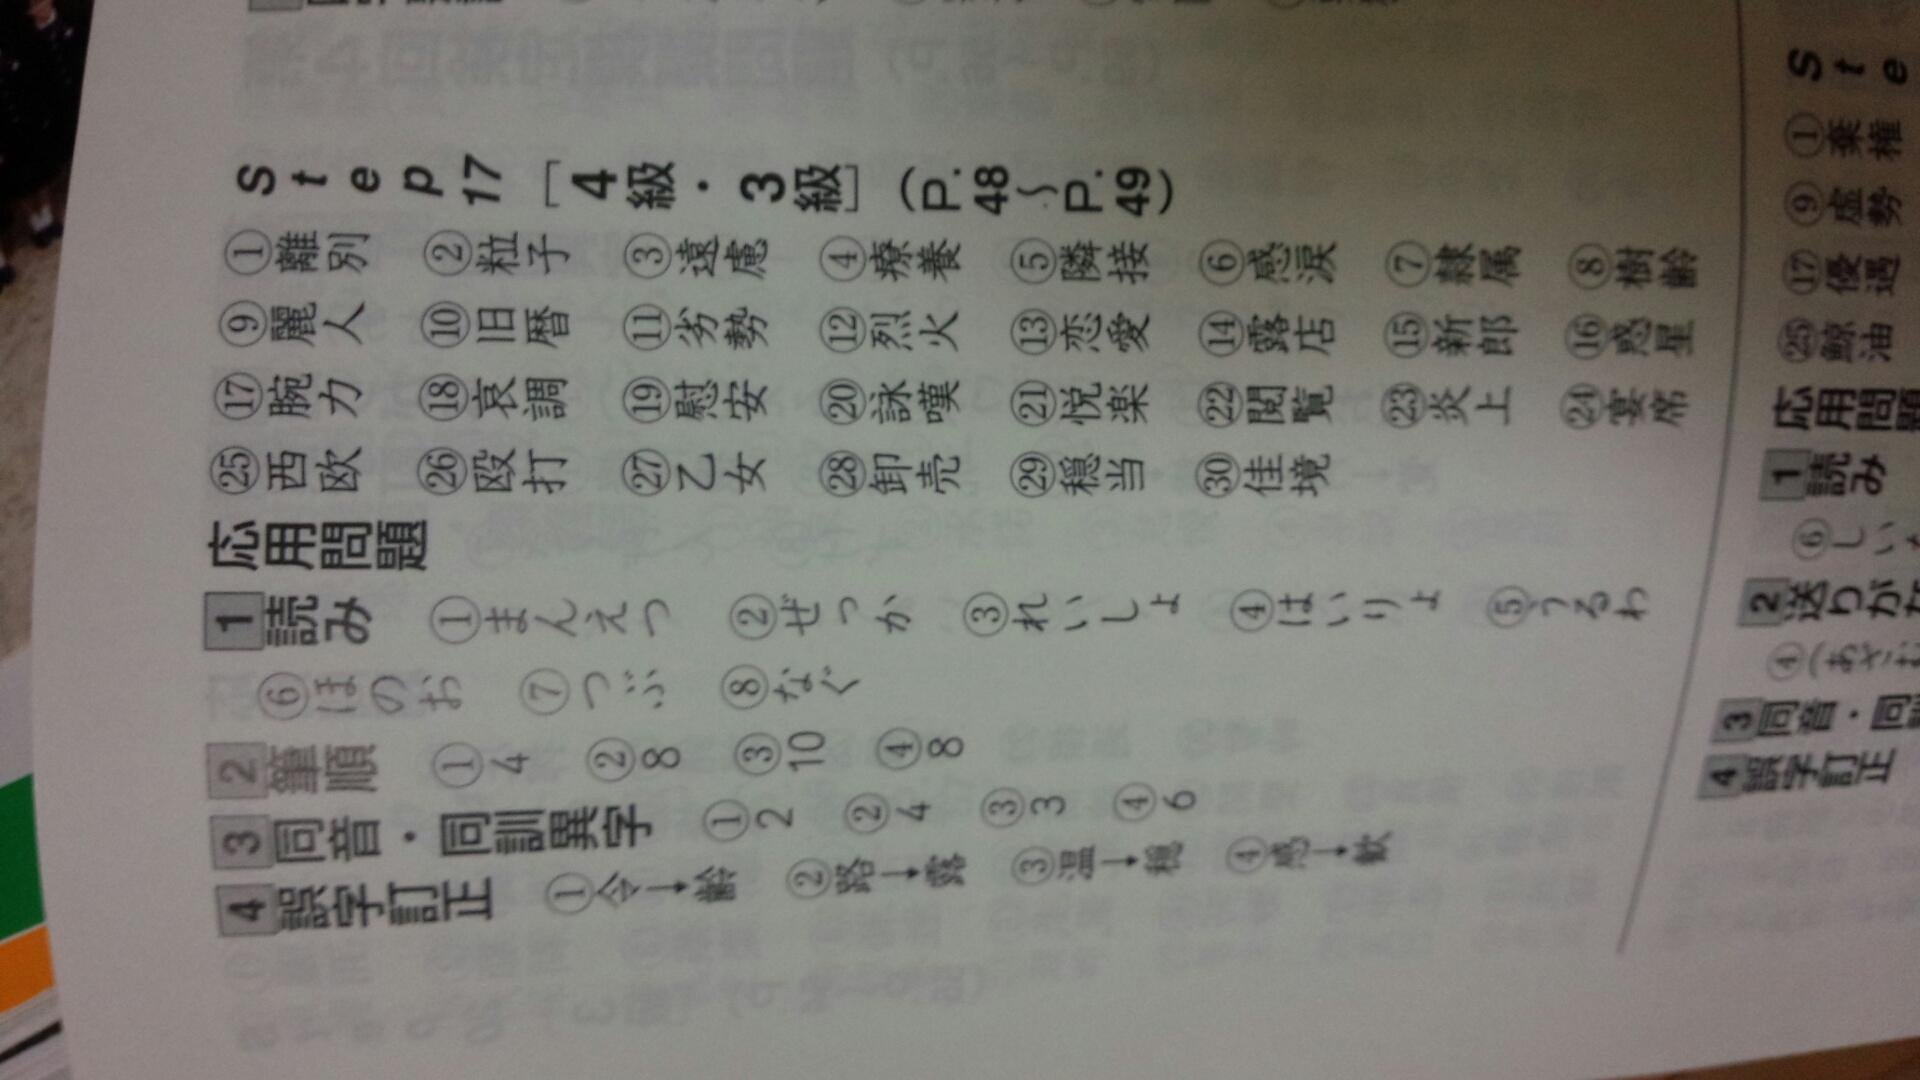 Step17［4級・3級］（P.48～P.49）
①離別 ②粒子 ③遠慮 ④療養 ⑤隣接 ⑥感涙 ⑦隷属 ⑧樹齢
⑨麗人 ⑩旧暦 ⑪劣勢 ⑫烈火 ⑬恋愛 ⑭露店 ⑮新郎 ⑯惑星
⑰腕力 ⑱哀調 ⑲慰安 ⑳詠嘆 ㉑悦楽 ㉒閲覧 ㉓炎上 ㉔宴席
㉕西欧 ㉖殴打 ㉗乙女 ㉘卸売 ㉙穏当 ㉚佳境
応用問題
1 読み ①まんえつ ②ぜっか ③れいしょ ④はいりょ ⑤うるわ
⑥ほのお ⑦つぶ ⑧なぐ
2 筆順 ①4 ②8 ③10 ④8
3 同音・同訓異字 ①2 ②4 ③3 ④6
4 誤字訂正 ①令→齢 ②路→露 ③温→穏 ④感→歓
Ste
①棄権
⑨虚勢
⑰優遇
㉕鯨油
応用問題
1 読み
⑥しいた
2 送りがな
④（あざむ
3 同音・同訓
4 誤字訂正